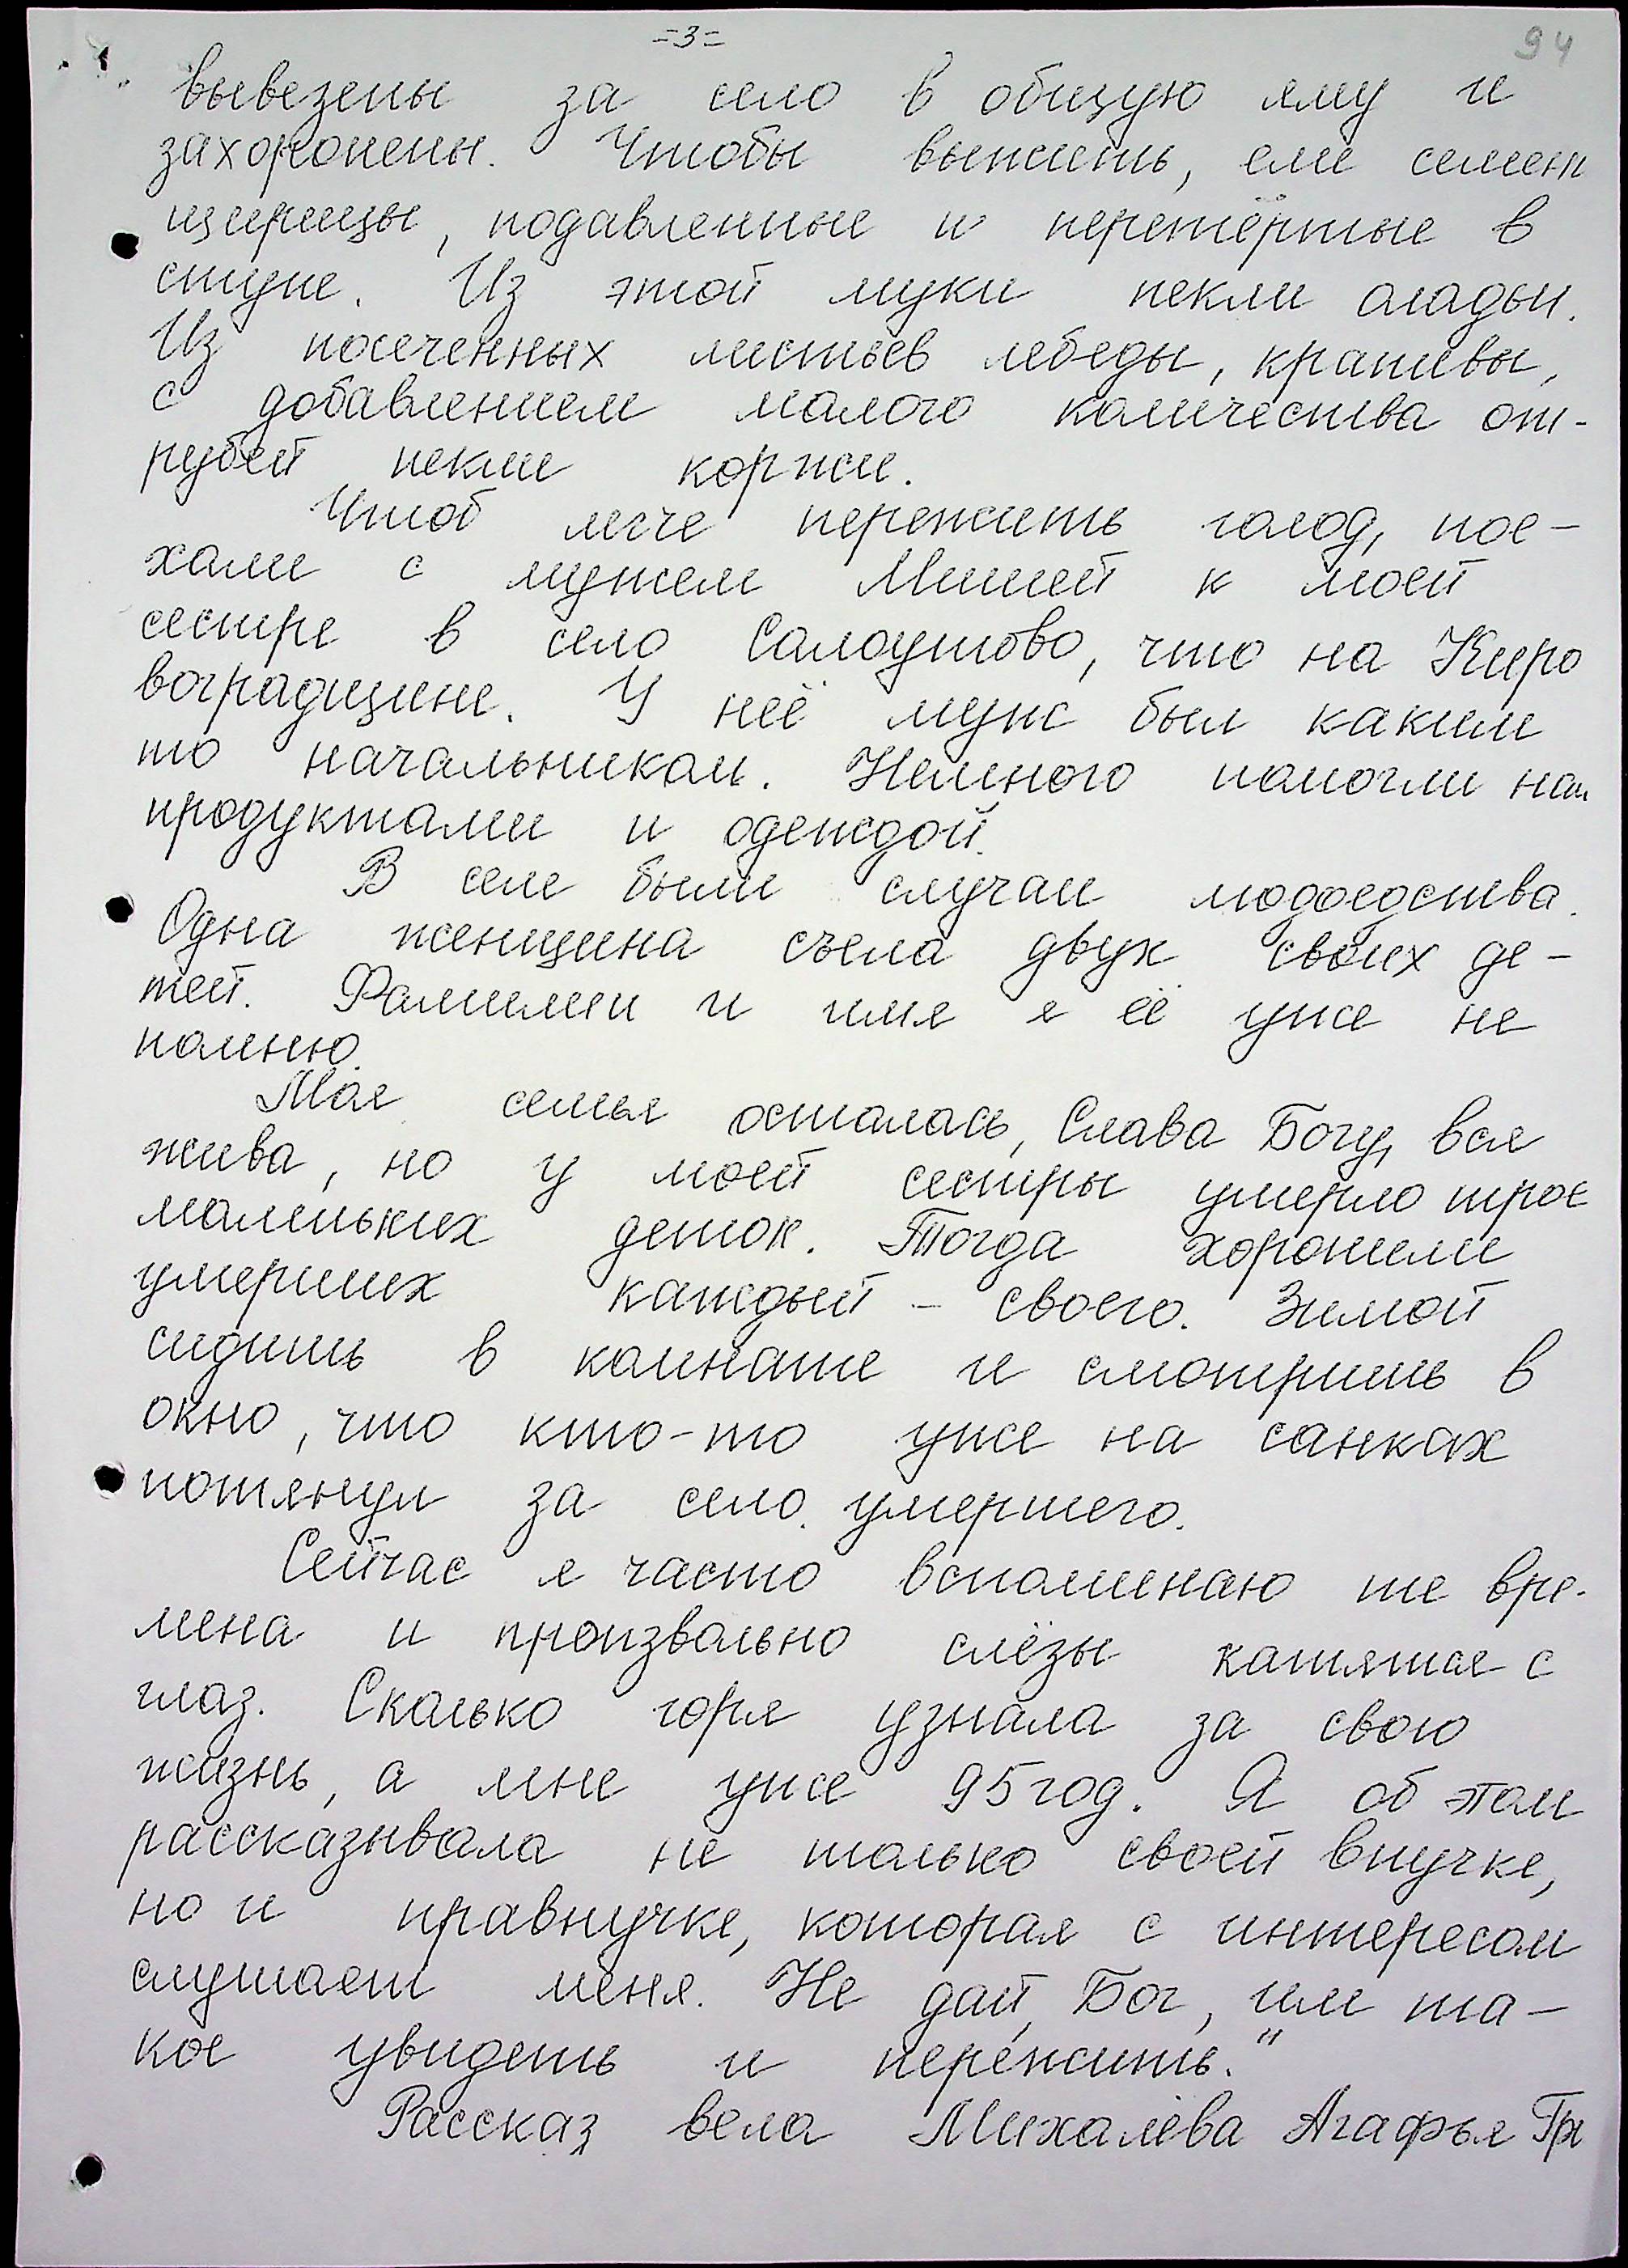 =3=
94
вывезены за село в общую яму и
захоронены. Чтобы выжить, ели семена
щирицы, подавленные и перетёртые в
ступе. Из этой муки пекли оладьи.
Из посеченных листьев лебеды, крапивы,
с добавлением малого количества от-
рубей пекли коржи.
Чтоб легче пережить голод, пое-
хали с мужем Мишей к моей
сестре в село Салоутово, что на Киро
воградщине. У неё муж был каким
то начальником. Немного помогли нам
продуктами и одеждой.
В селе были случаи людоедства.
Одна женщина съела двух своих де-
тей. Фамилии и имя я её уже не
помню.
Моя семья осталась, Слава Богу, вся
жива, но у моей сестры умерло трое
маленьких деток. Тогда хоронили
умерших каждый - своего. Зимой
сидишь в комнате и смотришь в
окно, что кто-то уже на санках
потянул за село умершего.
Сейчас я часто вспоминаю те вре-
мена и произвально слёзы катятся с
глаз. Сколько горя узнала за свою
жизнь, а мне уже 95 год. Я об этом
рассказывала не только своей внучке,
но и правнучке, которая с интересом
слушает меня. Не дай, Бог, им та-
кое увидеть и пережить."
Рассказ вела Михалёва Агафья Гр